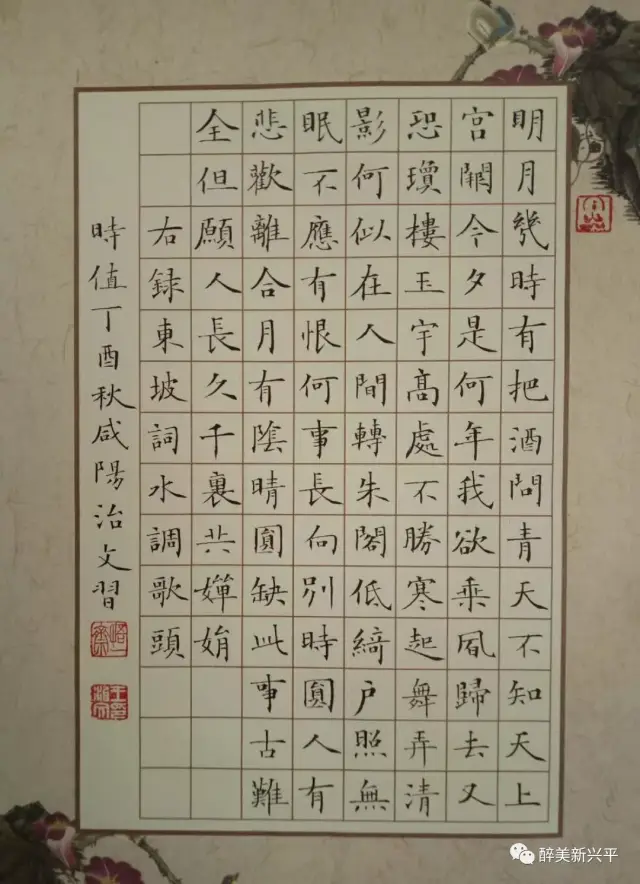 明月幾時有把酒問青天不知天上
宮闕今夕是何年我欲乘風歸去又
恐瓊樓玉宇高處不勝寒起舞弄清
影何似在人間轉朱閣低綺户照無
眠不應有恨何事長向別時圓人有
悲歡離合月有陰晴圓缺此事古難
全但願人長久千裏共嬋娟
右録東坡詞水調歌頭
時值丁酉秋咸陽治文習
醉美新兴平